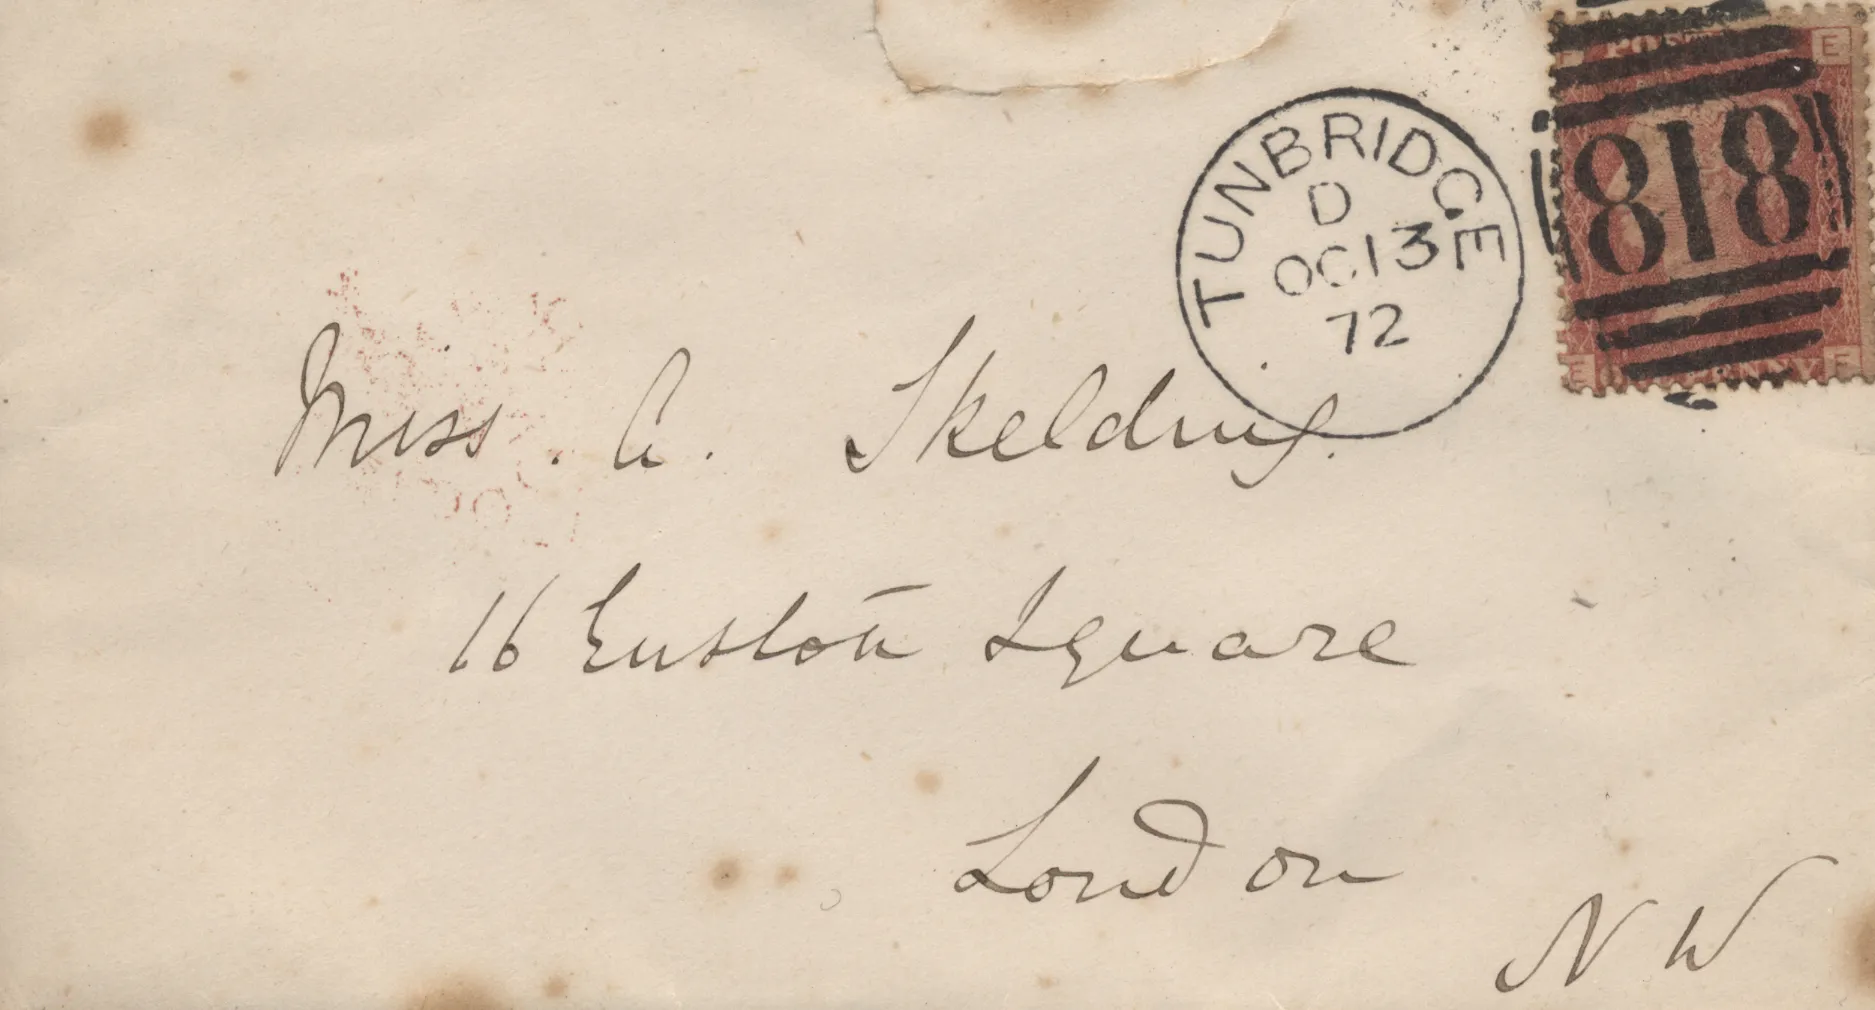 POSTAGE
E
TUNBRIDGE
D
OC 13
72
818
E ONE PENNY F
Miss. A. Skelding.
16 Euston Square
London
NW